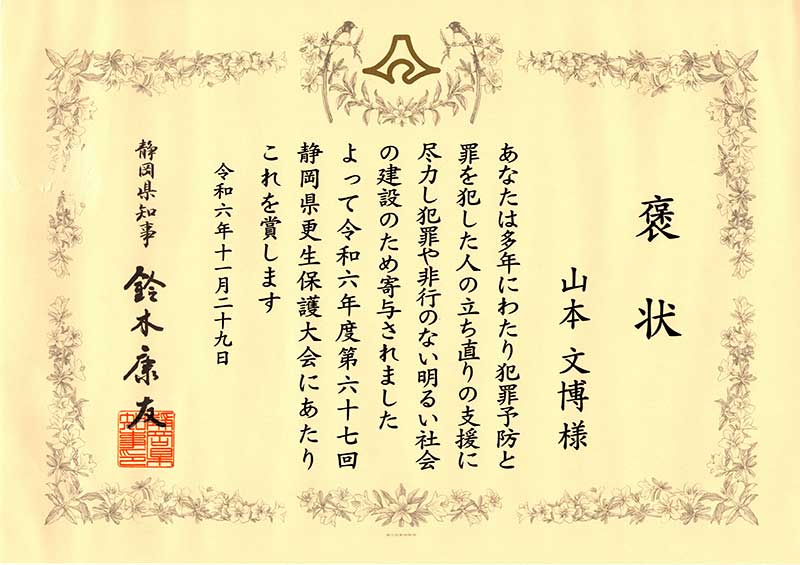 褒状
山本文博様
あなたは多年にわたり犯罪予防と
罪を犯した人の立ち直りの支援に
尽力し犯罪や非行のない明るい社会
の建設のため寄与されました
よって令和六年度第六十七回
静岡県更生保護大会にあたり
これを賞します
令和六年十一月二十九日
静岡県知事 鈴木康友